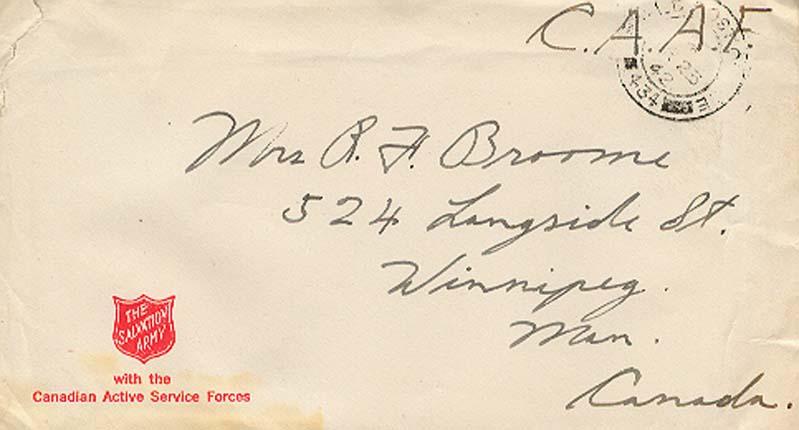 C.A.A.F
434
42
Mrs R. F. Broome
524 Langside St.
Winnipeg.
Man.
Canada.
THE
SALVATION
ARMY
with the
Canadian Active Service Forces